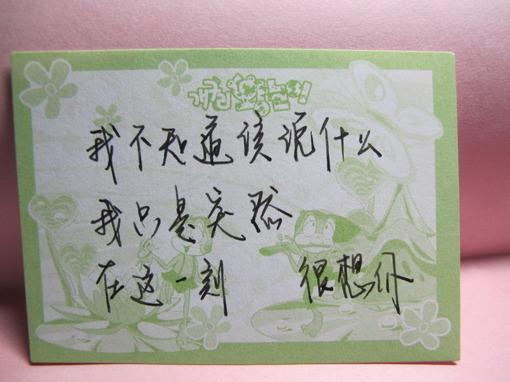 我不知道该说什么
我只是突然
在这一刻 很想你